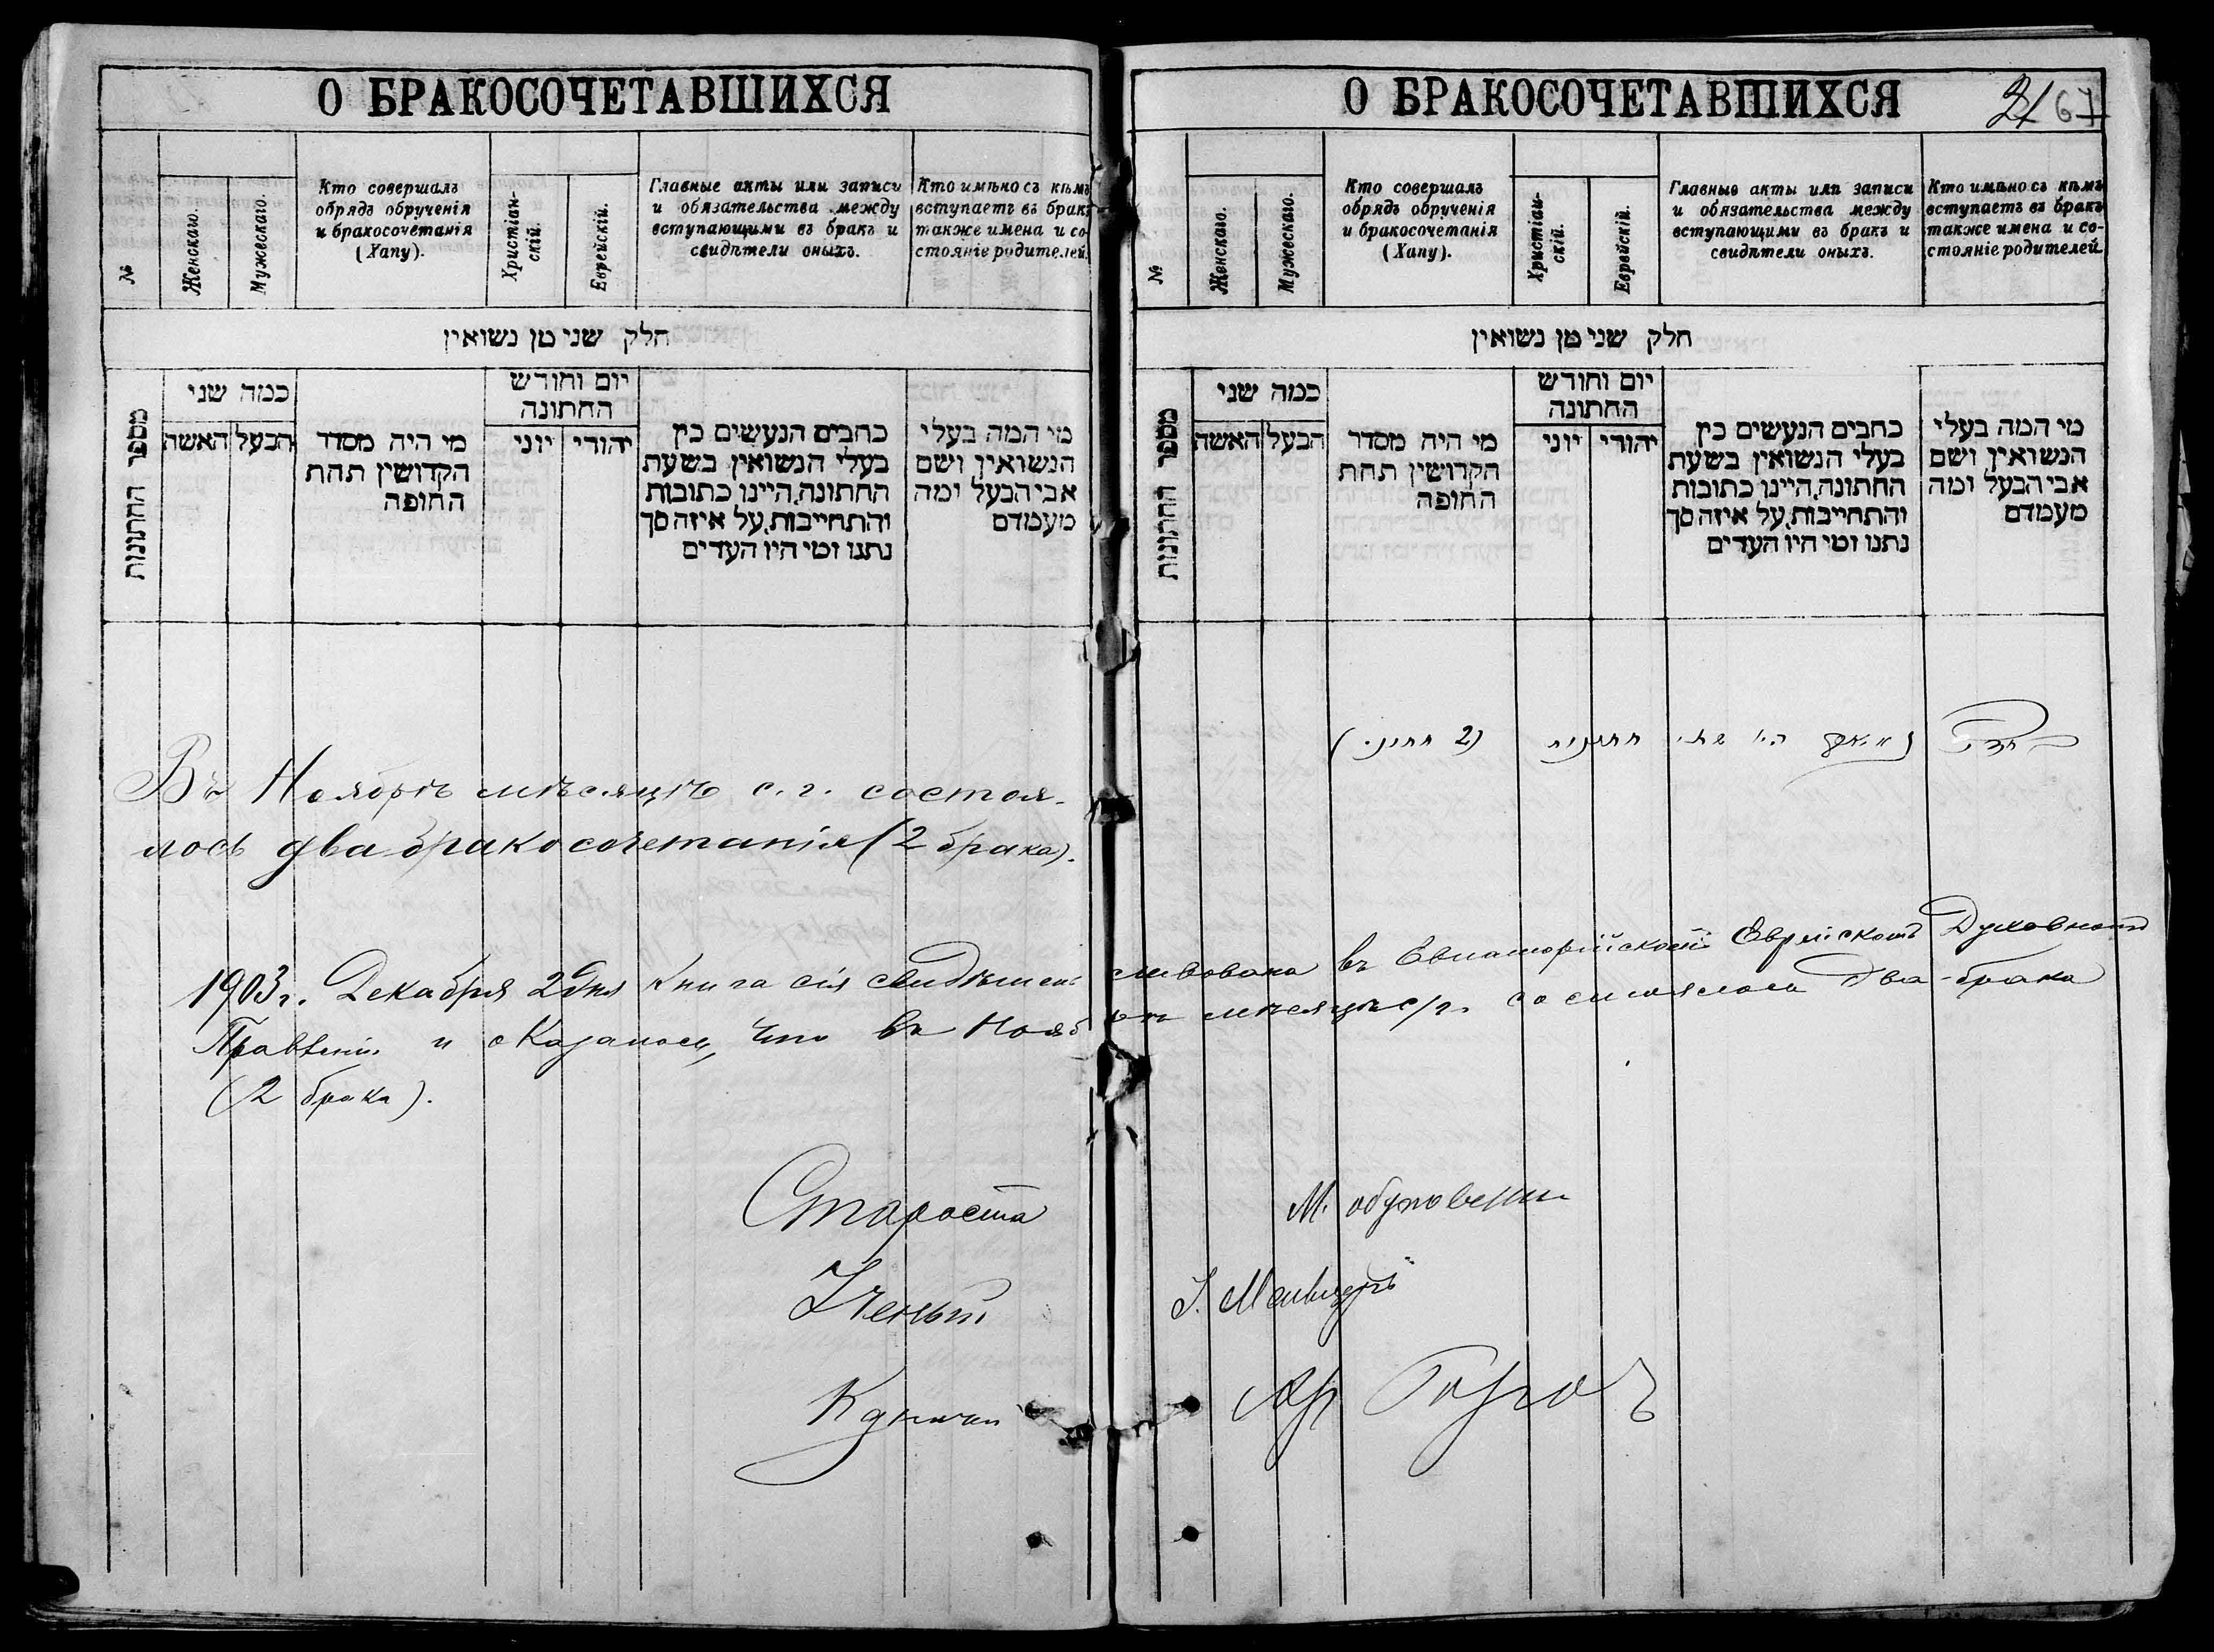 О БРАКОСОЧЕТАВШИХСЯ
№
Женскаго.
Мужескаго.
Кто совершалъ
обрядъ обрученія
и бракосочетанія
(Хапу).
Христіан-
скій.
Еврейскій.
Главные акты или записи
и обязательства между
вступающими въ бракъ и
свидѣтели оныхъ.
Кто имѣно съ кѣмъ
вступаетъ въ бракъ
также имена и со-
стояніе родителей.
חלק שני מן נשואין
מספר החתונות
כמה שני
האשה
הבעל
מי היה מסדר
הקדושין תחת
החופה
יום וחודש
החתונה
יוני
יהודי
כתבים הנעשים בין
בעלי הנשואין בשעת
החתונה, היינו כתובות
והתחייבות, על איזה סך
נתנו ומי היו העדים
מי המה בעלי
הנשואין ושם
אבי הבעל ומה
מעמדם
Въ Ноябрѣ мѣсяцѣ с. г. состоя-
лось два бракосочетанія (2 брака).
О БРАКОСОЧЕТАВШИХСЯ
21 67
№
Женскаго.
Мужескаго.
Кто совершалъ
обрядъ обрученія
и бракосочетанія
(Хапу).
Христіан-
скій.
Еврейскій.
Главные акты или записи
и обязательства между
вступающими въ бракъ и
свидѣтели оныхъ.
Кто имѣно съ кѣмъ
вступаетъ въ бракъ
также имена и со-
стояніе родителей.
חלק שני מן נשואין
מספר החתונות
כמה שני
האשה
הבעל
מי היה מסדר
הקדושין תחת
החופה
יום וחודש
החתונה
יוני
יהודי
כתבים הנעשים בין
בעלי הנשואין בשעת
החתונה, היינו כתובות
והתחייבות, על איזה סך
נתנו ומי היו העדים
מי המה בעלי
הנשואין ושם
אבי הבעל ומה
מעמדם
היו שתי חתונות (2
1903 г. Декабря 2 дня Книга сія свидѣтельствована въ Евпаторійскомъ Еврейскомъ Духовномъ
Правленіи и оказалось, что въ Ноябрѣ мѣсяцѣ с/г. состоялось два брака
(2 брака).
Староста М.
Ученый